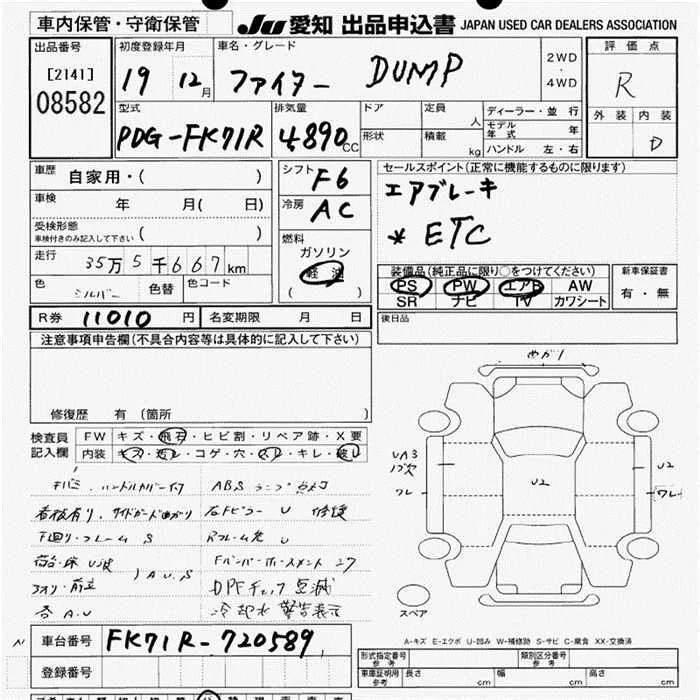 車内保管・守衛保管
JU 愛知 出品申込書 JAPAN USED CAR DEALERS ASSOCIATION
出品番号
[2141]
08582
初度登録年月
19 12月
車名・グレード
ファイター DUMP
2WD
・
4WD
評価点
R
外装 内装
D
型式
PDG-FK71R
排気量
4890cc
ドア
形状
定員 人
積載 kg
ディーラー・並行
モデル年式 年
ハンドル 左・右
車歴 自家用・( )
車検 年 月( 日)
受検形態
車検付きのみ記入して下さい ( )
走行 35万5千667km
色 シルバー 色替 色コード
シフト F6
冷房 AC
燃料
ガソリン
軽油
( )
セールスポイント(正常に機能するものに限ります)
エアブレーキ
* ETC
装備品(純正品に限り○をつけてください)
PS PW エアB AW
SR ナビ TV カワシート
新車保証書
有・無
R券 11010 円 名変期限 月 日
後日品
注意事項申告欄(不具合内容等は具体的に記入して下さい)
修復歴 有 (箇所 )
検査員記入欄
FW キズ・飛石・ヒビ割・リペア跡・X要
内装 キズ・汚レ・コゲ・穴・スレ・キレ・破レ
ABSランプ点灯
下廻り・フレーム S
DPFチェック点滅
冷却水警告表示
各 A.U
めがり
UA3
ワレ
U2
U2
ワレ
スペア
A-キズ E-エクボ U-凹み W-補修跡 S-サビ C-腐食 XX-交換済
車台番号 FK71R-720589
登録番号
形式指定番号 参考
類別区分番号 参考
車庫証明用 参考 長さ cm 幅 cm 高さ cm